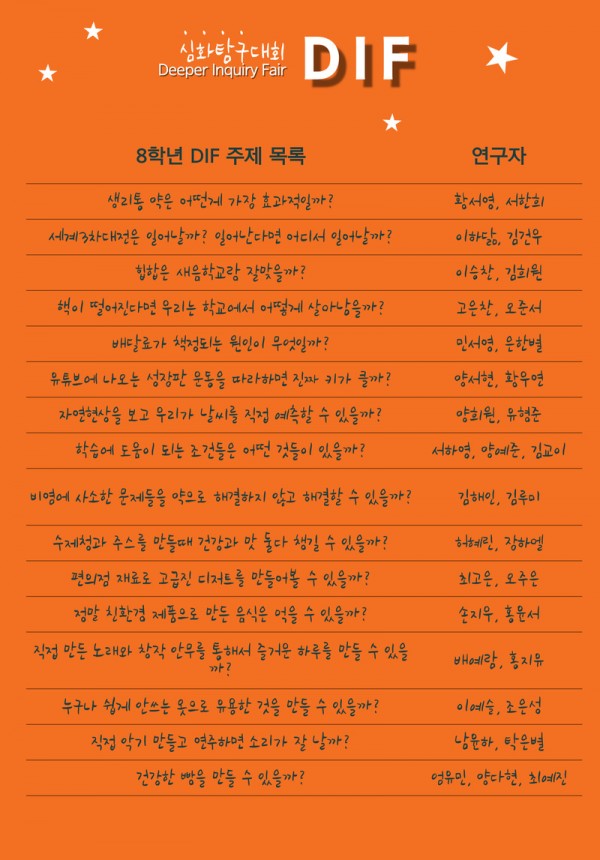 심화탐구대회
Deeper Inquiry Fair DIF
8학년 DIF 주제 목록 연구자
생리통 약은 어떤게 가장 효과적일까? 황서영, 서한희
세계3차대전은 일어날까? 일어난다면 어디서 일어날까? 이하닮, 김건우
힙합은 새음학교랑 잘맞을까? 이승찬, 김희원
핵이 떨어진다면 우리는 학교에서 어떻게 살아남을까? 고은찬, 오준서
배달료가 책정되는 원인이 무엇일까? 민서영, 은한별
유튜브에 나오는 성장판 운동을 따라하면 진짜 키가 클까? 양서현, 황우연
자연현상을 보고 우리가 날씨를 직접 예측할 수 있을까? 양희원, 유형준
학습에 도움이 되는 조건들은 어떤 것들이 있을까? 서하영, 양예준, 김교이
비염에 사소한 문제들을 약으로 해결하지 않고 해결할 수 있을까? 김해인, 김루미
수제청과 주스를 만들때 건강과 맛 둘다 챙길 수 있을까? 허혜린, 장하엘
편의점 재료로 고급진 디저트를 만들어볼 수 있을까? 최고은, 오주은
정말 친환경 제품으로 만든 음식은 먹을 수 있을까? 손지우, 홍윤서
직접 만든 노래와 창작 안무를 통해서 즐거운 하루를 만들 수 있을
까? 배예랑, 홍지유
누구나 쉽게 안쓰는 옷으로 유용한 것을 만들 수 있을까? 이예슬, 조은성
직접 악기 만들고 연주하면 소리가 잘 날까? 남윤하, 탁은별
건강한 빵을 만들 수 있을까? 엄유민, 양다현, 최예진